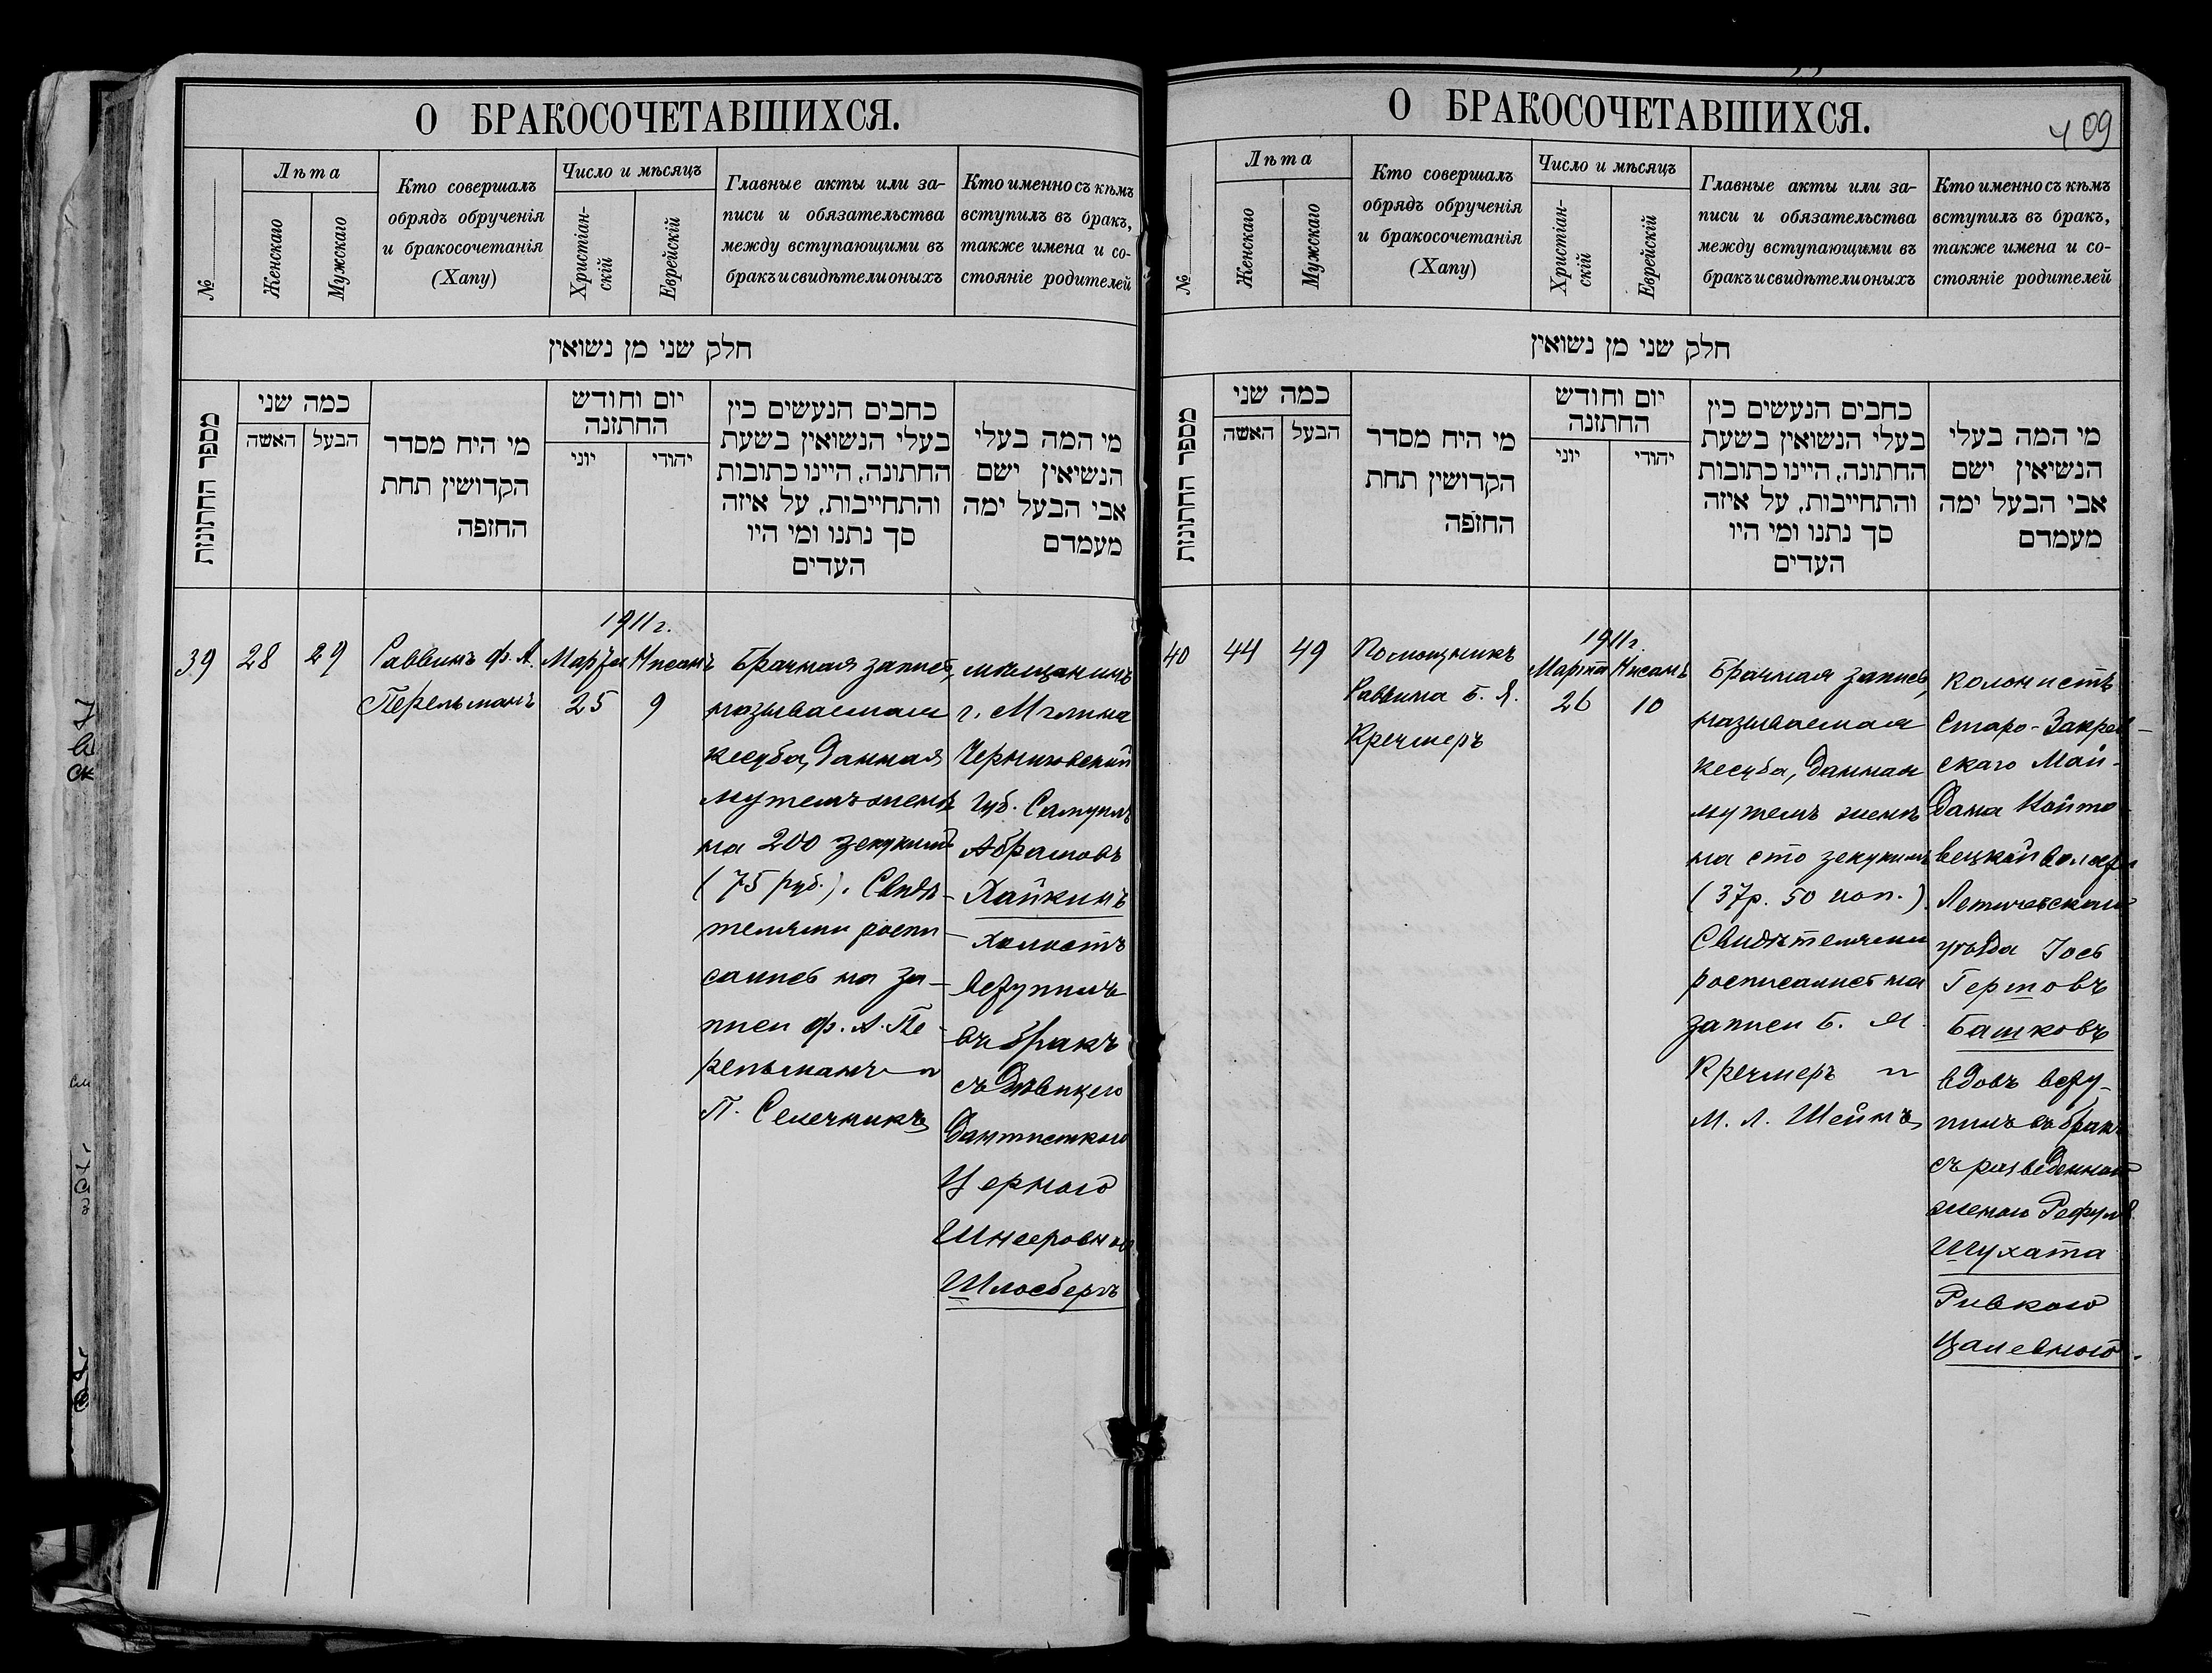 О БРАКОСОЧЕТАВШИХСЯ.
№
Лѣта
Женскаго
Мужскаго
Кто совершалъ
обрядъ обрученія
и бракосочетанія
(Хапу)
Число и мѣсяцъ
Христіан-
скій
Еврейскій
Главные акты или за-
писи и обязательства
между вступающими въ
бракъ и свидѣтели оныхъ
Кто именно съ кѣмъ
вступилъ въ бракъ,
также имена и со-
стояніе родителей
חלק שני מן נשואין
מספר החתונות
כמה שני
האשה
הבעל
מי היח מסדר
הקדושין תחת
החזפה
יום וחודש
החתזנה
יוני
יהודי
כחבים הנעשים כין
בעלי הנשואין בשעת
החתונה, היינו כתובות
והתחייבות, על איזה
סך נתנו ומי היו
העדים
מי המה בעלי
הנשיאין ישם
אבי הבעל ימה
מעמדם
39
28
29
Раввинъ Ф. А.
Перельманъ
1911 г.
Марта
25
Нисанъ
9
Брачная запись,
называемая
кесуба, данная
мужемъ женѣ
на 200 зекукимъ
(75 руб.). Свидѣ-
телями роспи-
сались на за-
писи Ф. А. Пе-
рельманъ и
П. Селечникъ
мѣщанинъ
г. Мглина
Черниговской
губ. Самуилъ
Абрамовъ
Хайкинъ
холостъ
вступилъ
въ бракъ
съ дѣвицею
дантисткою
Церною
Шнееровною
Шлосбергъ
О БРАКОСОЧЕТАВШИХСЯ.
409
№
Лѣта
Женскаго
Мужскаго
Кто совершалъ
обрядъ обрученія
и бракосочетанія
(Хапу)
Число и мѣсяцъ
Христіан-
скій
Еврейскій
Главные акты или за-
писи и обязательства
между вступающими въ
бракъ и свидѣтели оныхъ
Кто именно съ кѣмъ
вступилъ въ бракъ,
также имена и со-
стояніе родителей
חלק שני מן נשואין
מספר החתונות
כמה שני
האשה
הבעל
מי היח מסדר
הקדושין תחת
החזפה
יום וחודש
החתזנה
יוני
יהודי
כחבים הנעשים כין
בעלי הנשואין בשעת
החתונה, היינו כתובות
והתחייבות, על איזה
סך נתנו ומי היו
העדים
מי המה בעלי
הנשיאין ישם
אבי הבעל ימה
מעמדם
40
44
49
Помощникъ
Раввина Б. Я.
Кремеръ
1911 г.
Марта
26
Нисанъ
10
Брачная запись,
называемая
кесуба, данная
мужемъ женѣ
на сто зекукимъ
(37р. 50 коп.).
Свидѣтелями
росписались на
записи Б. Я.
Кремеръ и
М. Л. Шейнъ
колонистъ
Старо-Закрев-
скаго Май-
дана
Летичевскаго
уѣзда Іось
Гершовъ
Башковъ
вдовъ всту-
пилъ въ бракъ
съ разведенной
женою
Шухата
Ривкою
Цалевною.